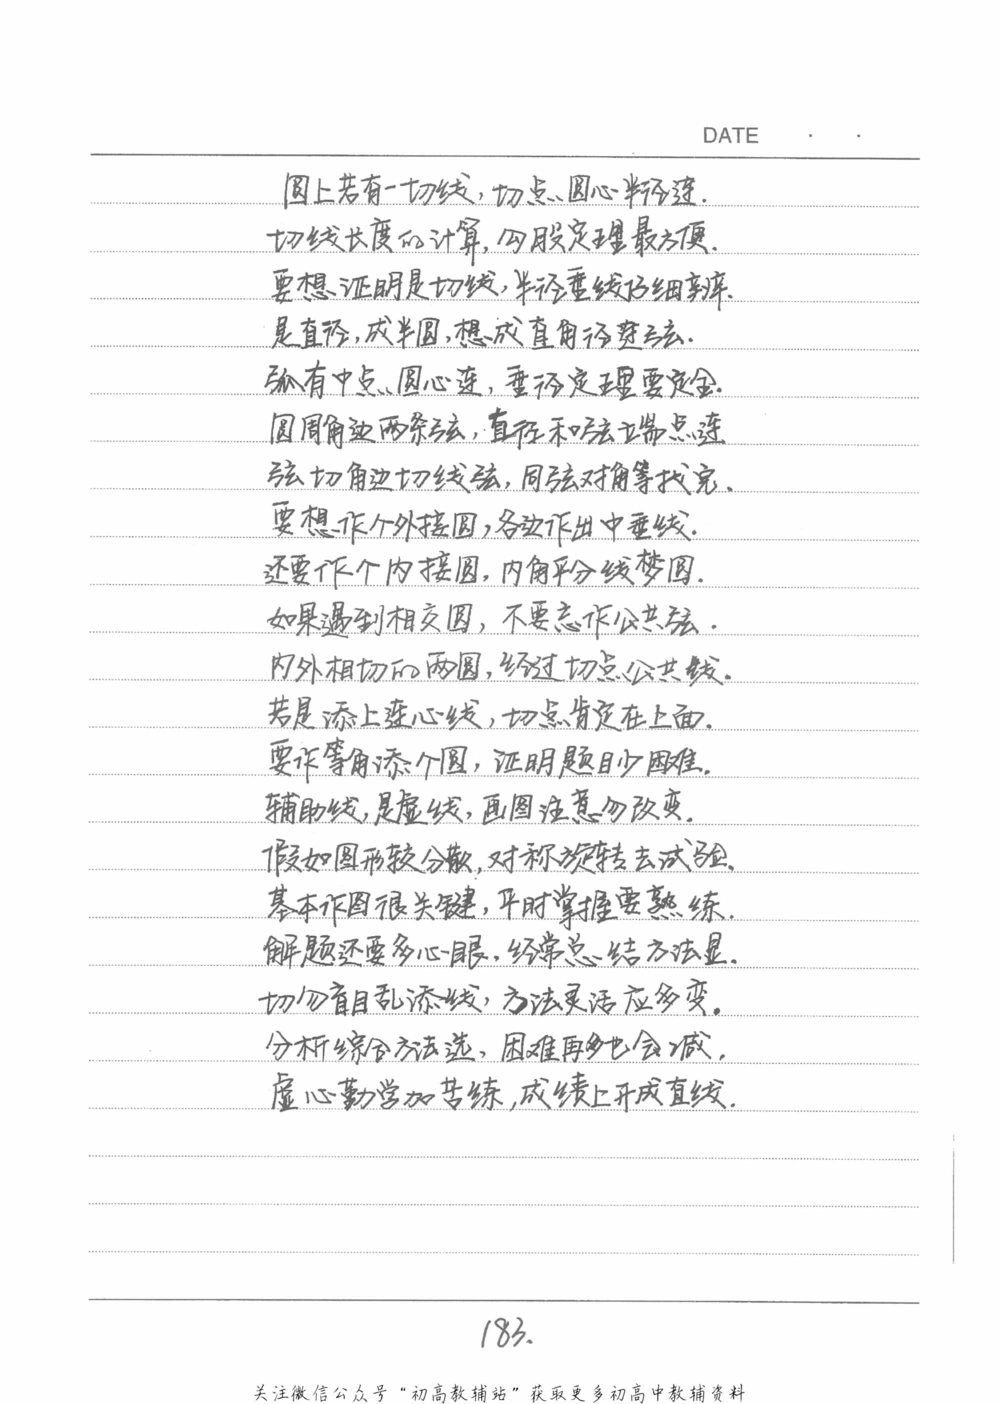 DATE · ·
圆上若有一切线,切点、圆心半径连.
切线长度的计算,勾股定理最方便.
要想证明是切线,半径垂线仔细辨.
是直径,成半圆,想成直角径连弦.
弧有中点、圆心连,垂径定理要定全.
圆周角边两条弦,直径和弦端点连
弦切角边切线弦,同弦对角等找完.
要想作个外接圆,各边作出中垂线.
还要作个内接圆,内角平分线梦圆.
如果遇到相交圆,不要忘作公共弦.
内外相切的两圆,经过切点公共线.
若是添上连心线,切点肯定在上面.
要作等角添个圆,证明题目少困难.
辅助线,是虚线,画图注意勿改变.
假如图形较分散,对称旋转去试验.
基本作图很关键,平时掌握要熟练.
解题还要多心眼,经常总结方法显.
切勿盲目乱添线,方法灵活应多变.
分析综合方法选,困难再多也会减.
虚心勤学加苦练,成绩上升成直线.
183.
关注微信公众号“初高教辅站”获取更多初高中教辅资料